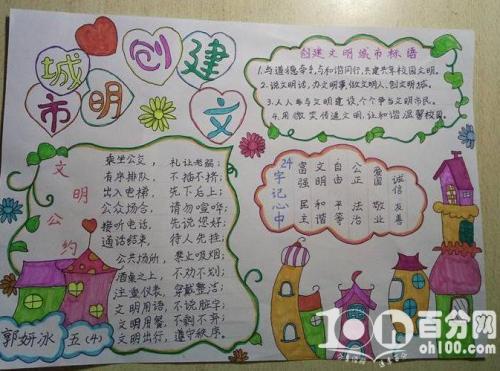 创建
文
城市
明
创建文明城市标语
1.与道德牵手,与和谐同行,共建共享校园文明。
2.说文明话,办文明事,做文明人,创文明城。
3.人人参与文明建设,个个争当文明市民。
4.用微笑传递文明,让和谐温馨校园。
文明公约
乘坐公交, 礼让老弱;
有序排队, 不插不挤;
出入电梯, 先下后上;
公众场合, 请勿喧哗;
接听电话, 先说您好;
通话结束, 待人先挂;
公共场所, 禁止吸烟;
酒桌之上, 不劝不划;
注重仪表, 穿戴整洁;
文明用语, 不说脏字;
文明用餐, 不剩不弃;
文明出行, 遵守秩序。
24字记心中
富强 民主
文明 和谐
自由 平等
公正 法治
爱国 敬业
诚信 友善
郭妍冰 五(4)
100百分网
oh100.com